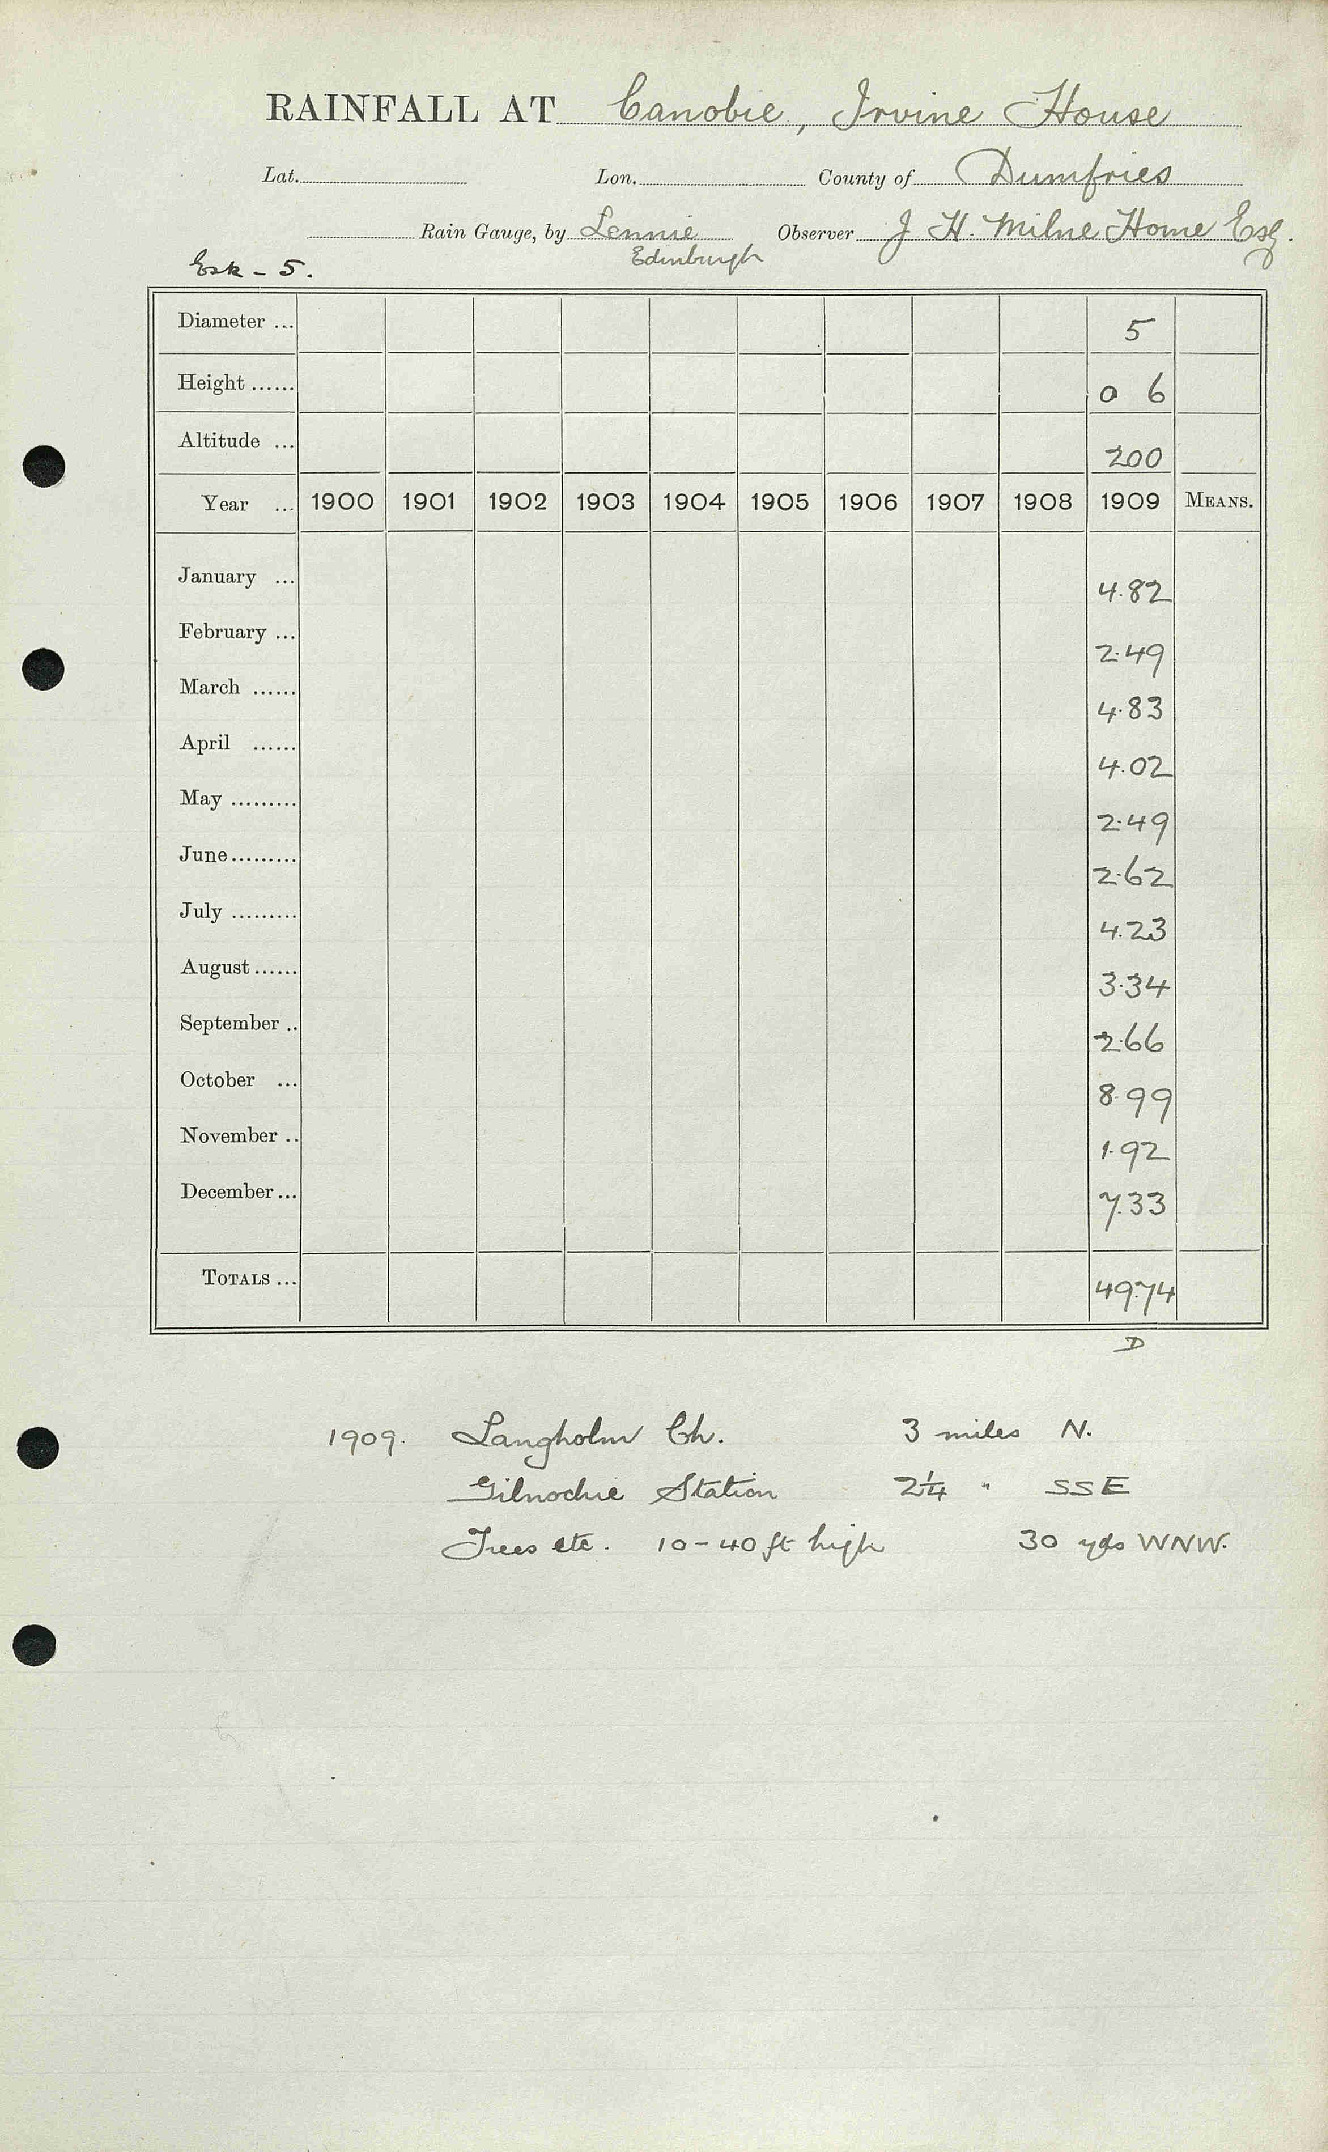 RAINFALL AT Canobie, Irvine House
Lat. Lon. County of Dumfries
Rain Gauge, by Lennie Observer J H. Milne Home Esq.
Edinburgh
Esk - 5.
Diameter ... 5
Height ...... 0 6
Altitude ... 200
Year ... 1900 1901 1902 1903 1904 1905 1906 1907 1908 1909 MEANS.
January ... 4.82
February ... 2.49
March ...... 4.83
April ...... 4.02
May ......... 2.49
June ......... 2.62
July ......... 4.23
August ...... 3.34
September .. 2.66
October ... 8.99
November .. 1.92
December ... 7.33
TOTALS ... 49.74
D
1909. Langholm Ch. 3 miles N.
Gilnockie Station 2¼ " SSE
Trees etc. 10-40 ft high 30 yds WNW.